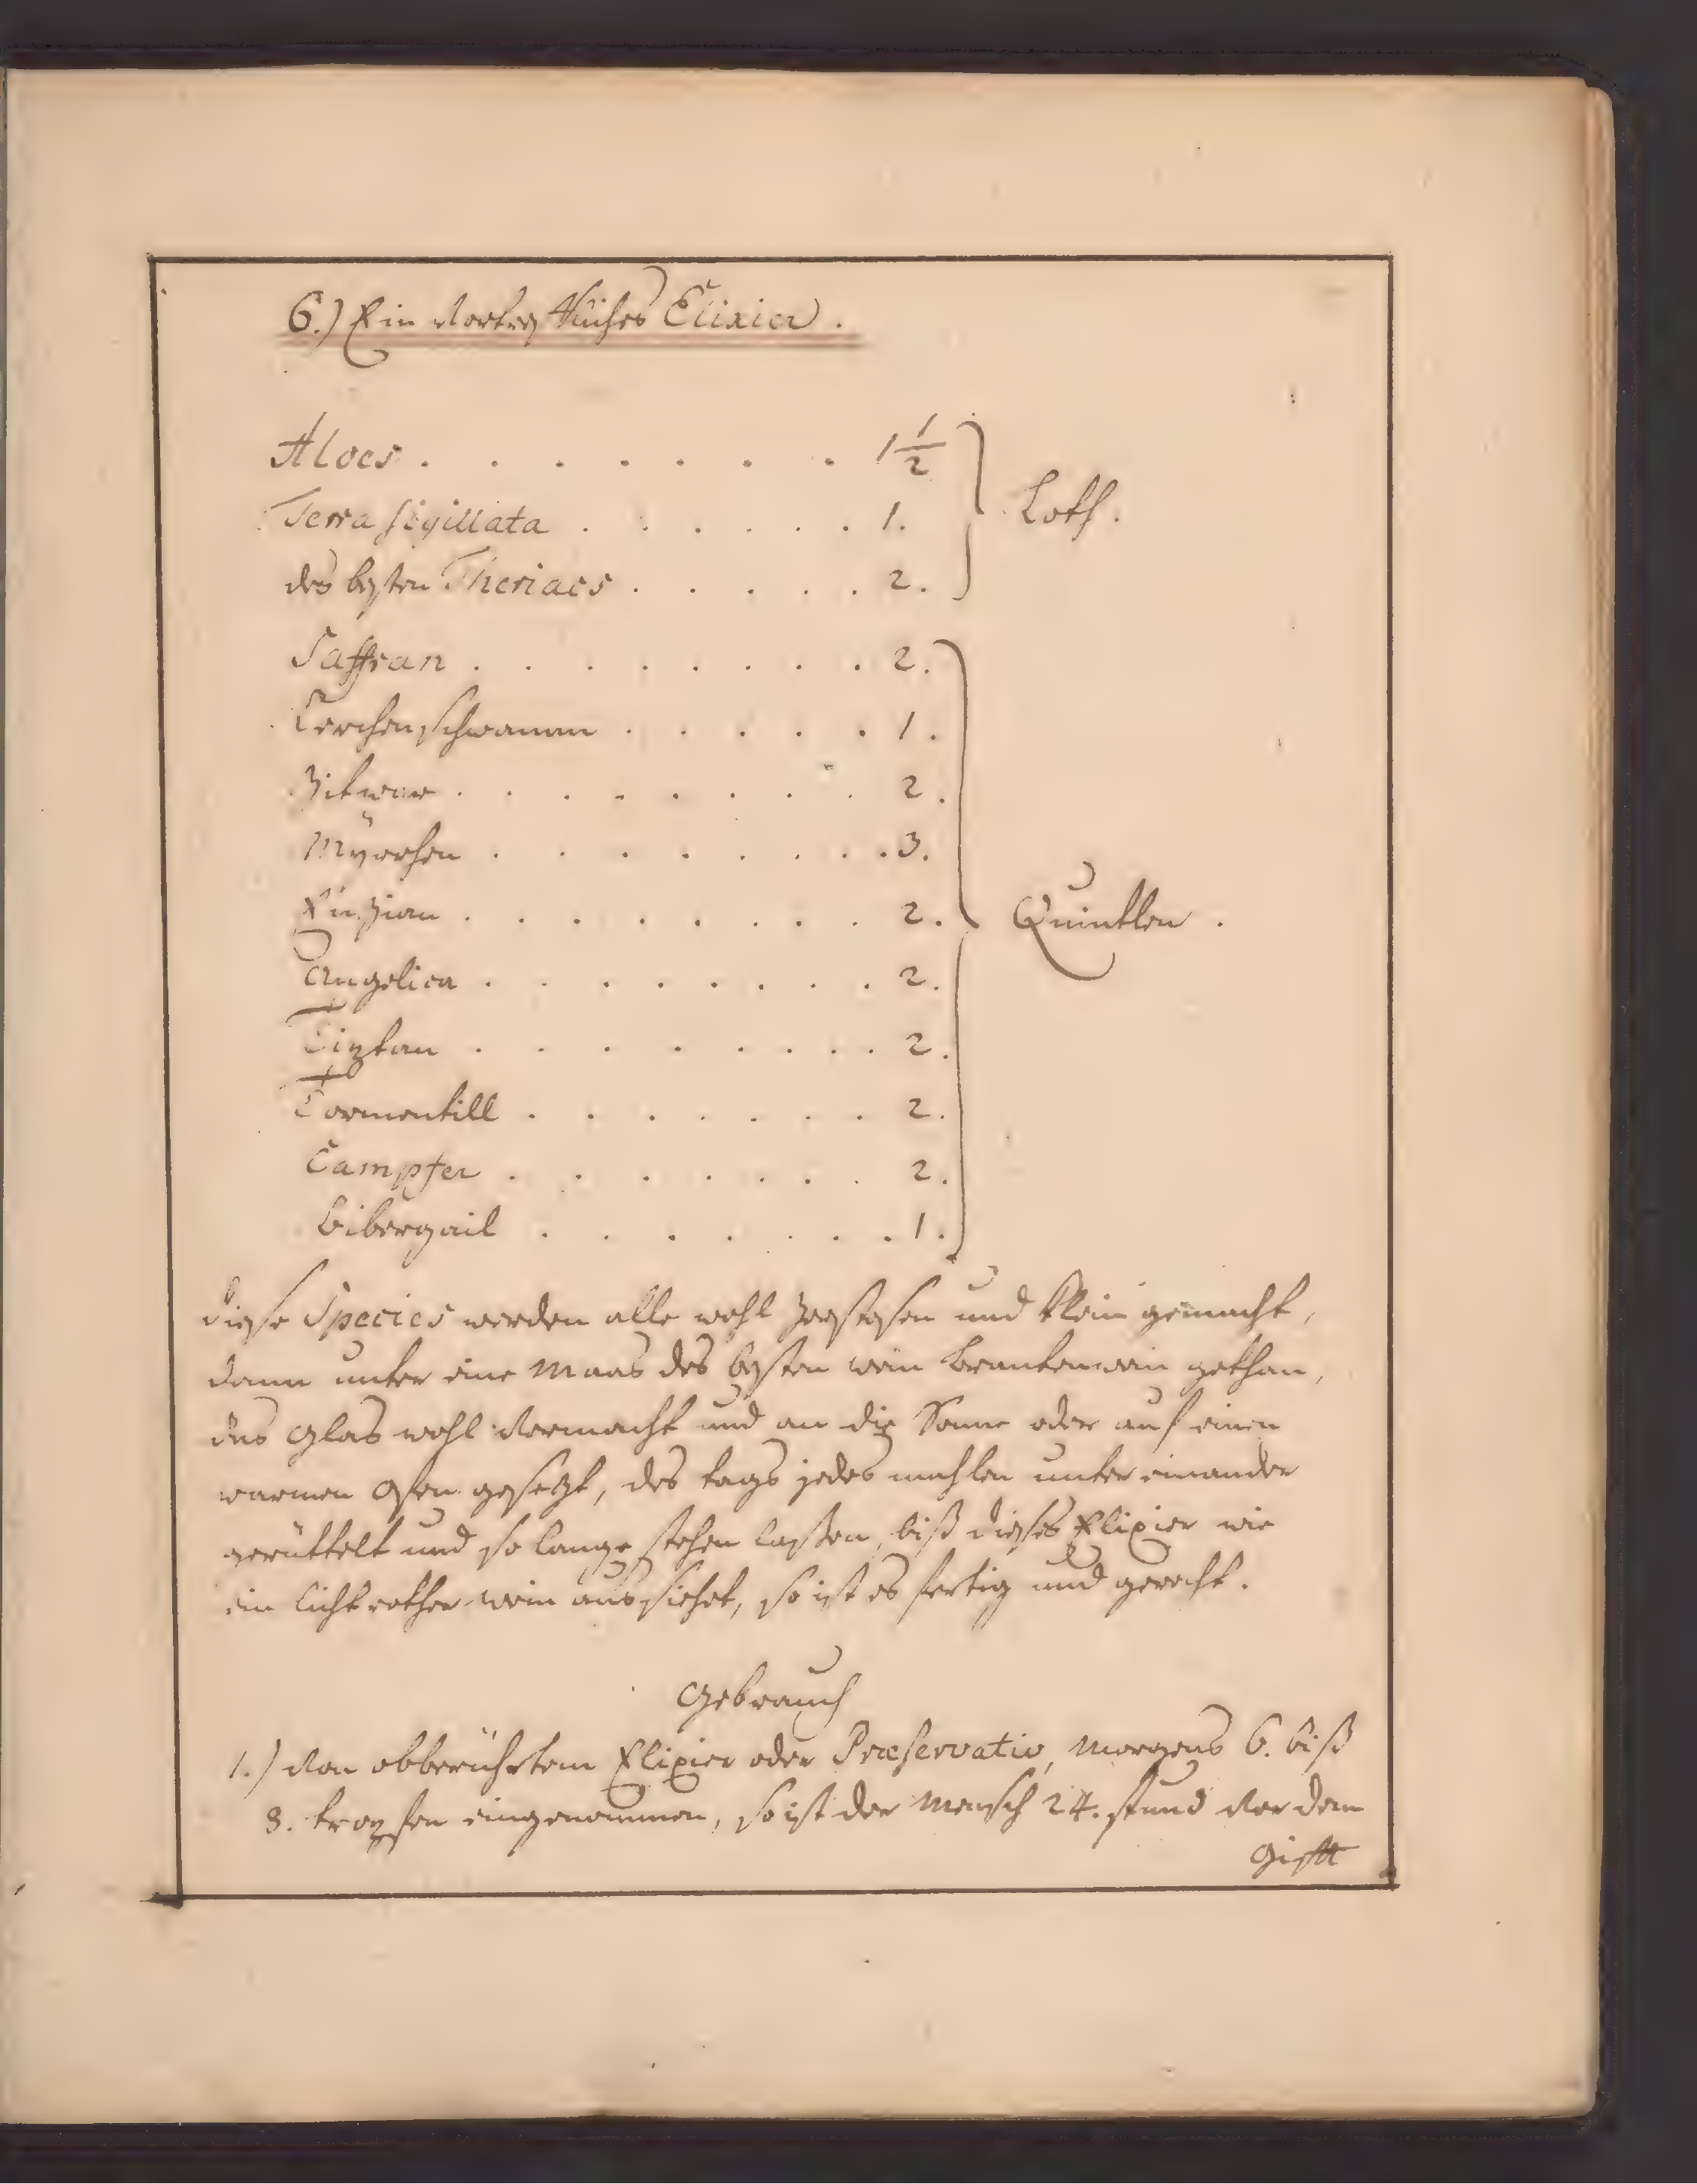 6.) Ein vortreffliches Elixier.
Aloes . . . . . . . 1 1/2
Terra sigillata . . . . . . 1. Loth.
des besten Theriacs . . . . . 2.
Saffran . . . . . . . . 2.
Lerchenschwamm . . . . . 1.
Zitwer . . . . . . . . 2.
Myrrhen . . . . . . . . 3.
Enzian . . . . . . . . 2. Quintlen.
Angelica . . . . . . . . 2.
Diptan . . . . . . . . 2.
Tormentill . . . . . . . 2.
Campfer . . . . . . . 2.
Bibergail . . . . . . . 1.
diese Species werden alle wohl zerstosen und klein gemacht,
dann unter eine Maas des besten wein Brantenwein gethan,
das Glas wohl vermacht und an die Sonne oder auf einen
warmen Ofen gesetzt, des tags jedes mahlen unter einander
gerüttelt und so lange stehen laßen, biß dieses Elixier wie
ein lichtrother wein aussiehet, so ist es fertig und gerecht.
Gebrauch
1.) Von obberührtem Elixier oder Præservativ, Morgens 6. biß
8. tropfen eingenommen, so ist der Mensch 24. stund vor dem
Gifft